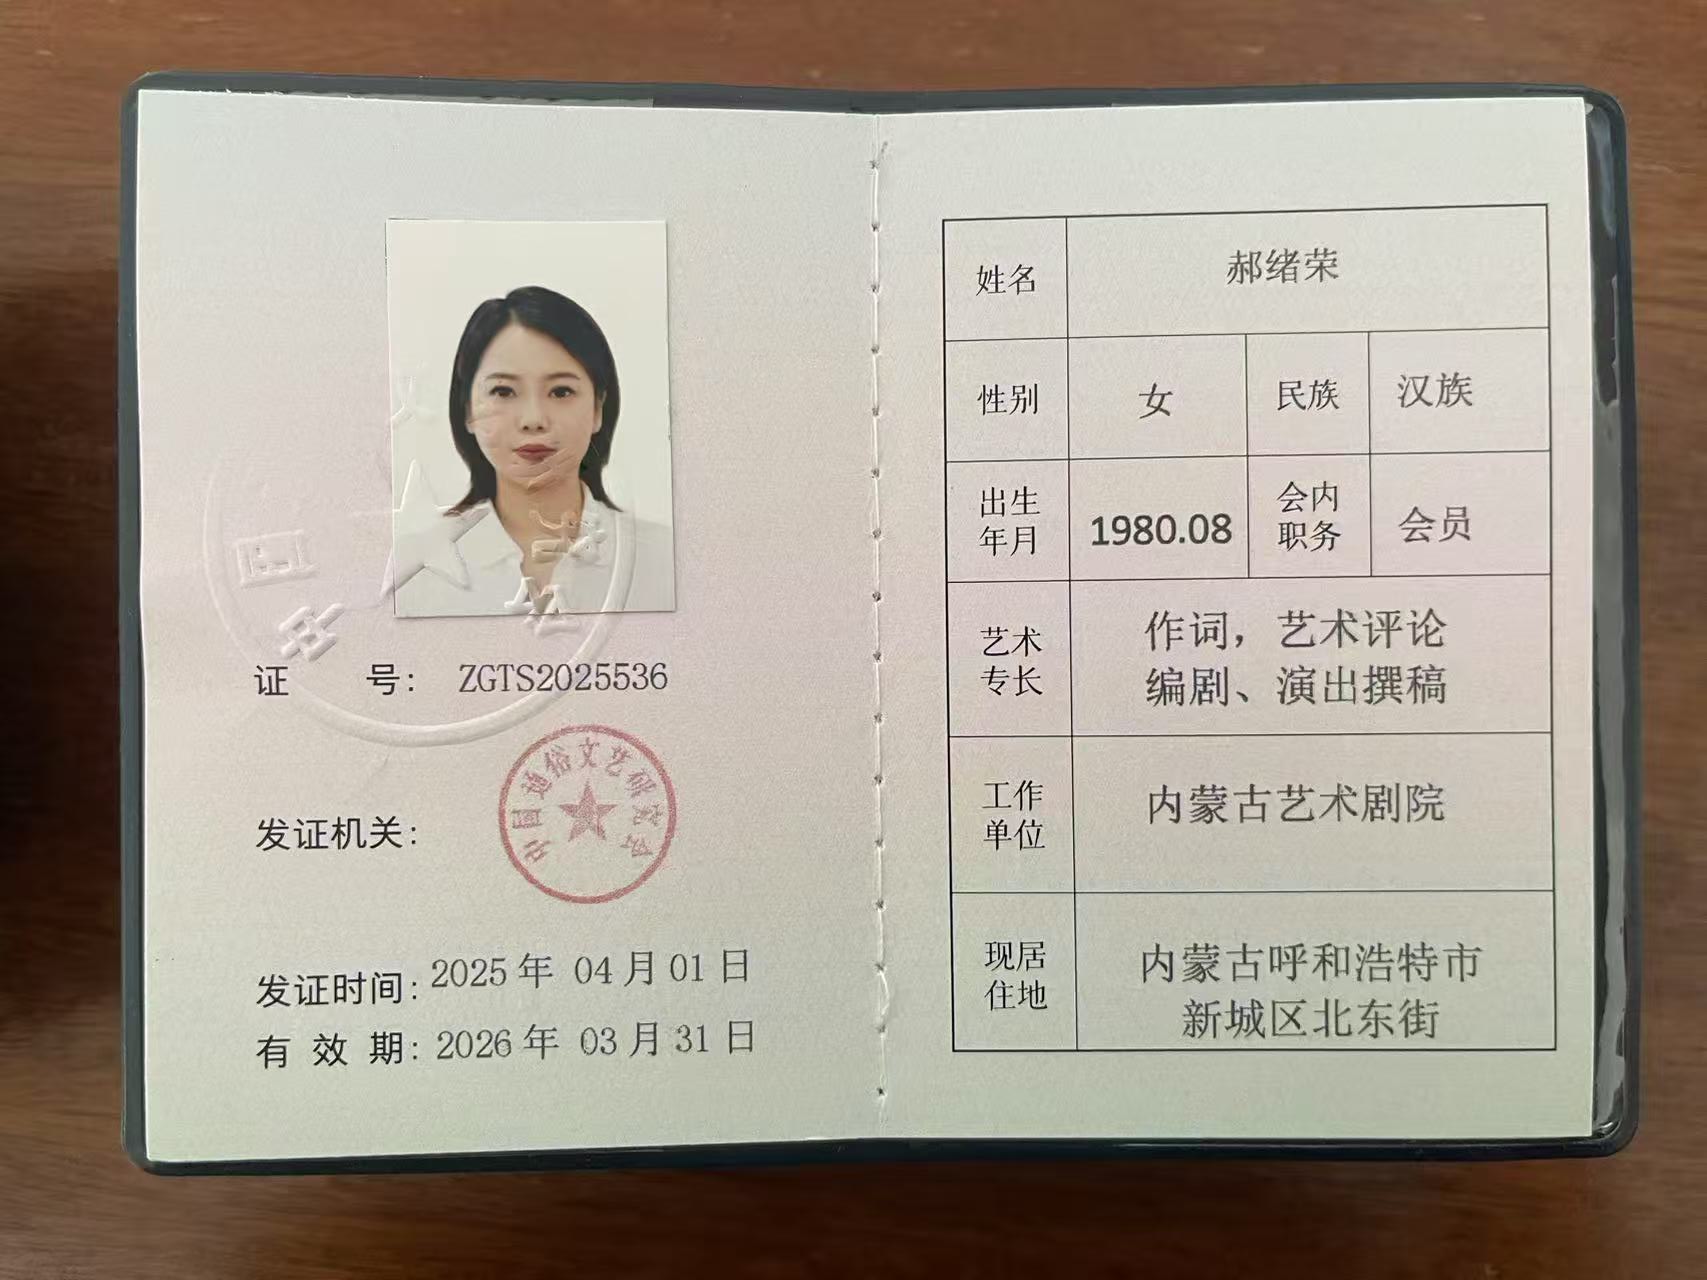 中国
证 号： ZGTS2025536
中国通俗文艺研究会
发证机关：
发证时间：2025年 04月01日
有 效 期：2026年 03月31日
姓名 郝绪荣
性别 女 民族 汉族
出生年月 1980.08 会内职务 会员
艺术专长 作词，艺术评论
编剧、演出撰稿
工作单位 内蒙古艺术剧院
现居住地 内蒙古呼和浩特市
新城区北东街